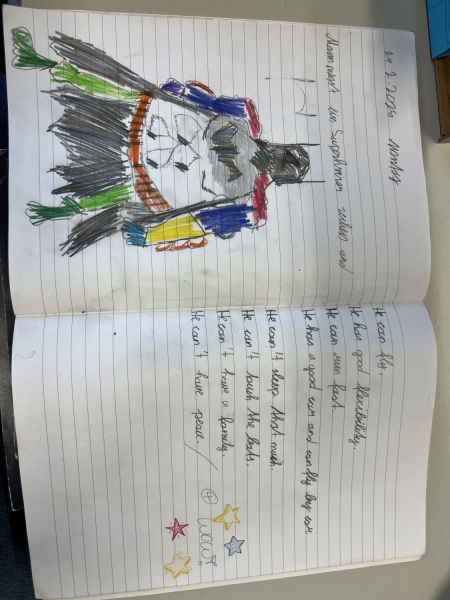 24.2.2025 Montag
ein Superhelden und
He can fly.
He has good flexibility.
He can run fast.
He has a good car and can fly by car.
He can't sleep that much.
He can't touch the bats.
He can't have a family.
He can't have peace.
WOW!